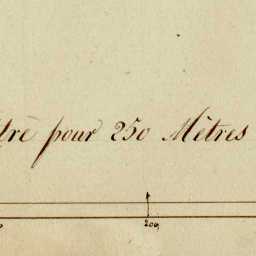 pour 250 Mètres
200